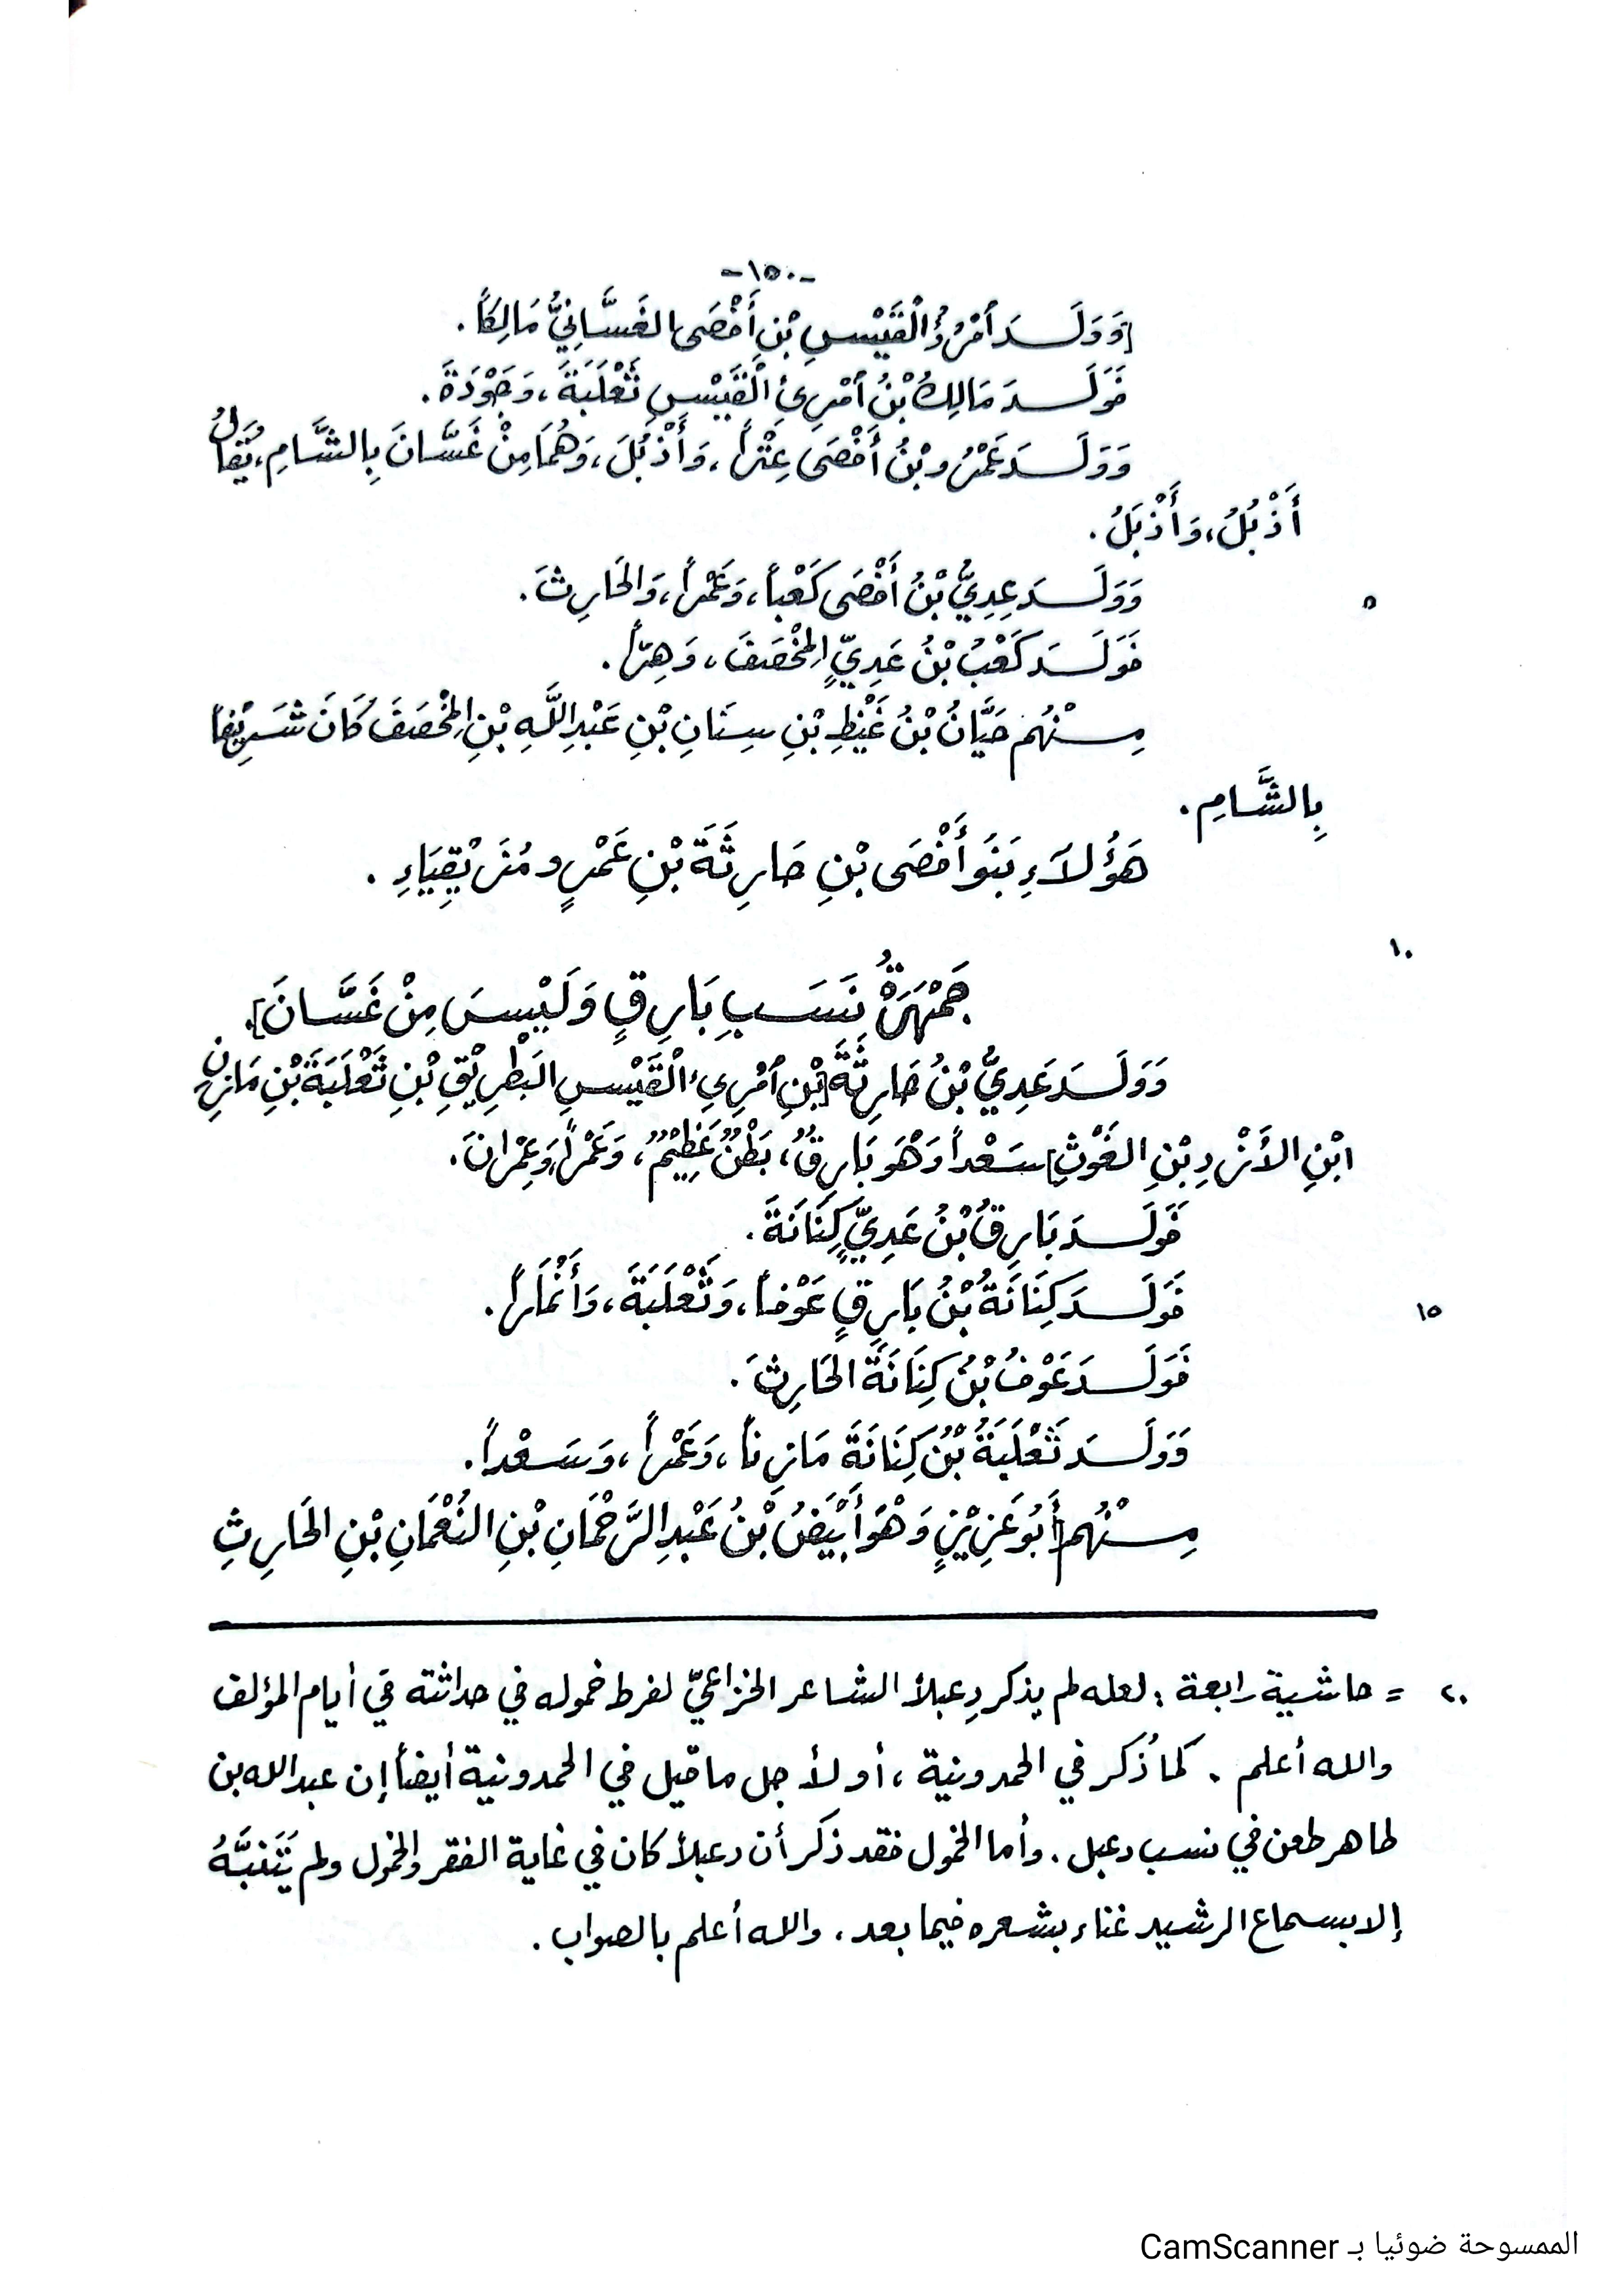 -١٥٠-
[وَوَلَـدَ امْرُؤُ الْقَيْسِ بْنِ أَفْصَى الغَسَّانِيُّ مَالِكاً.
فَوَلَـدَ مَالِكُ بْنُ امْرِئِ الْقَيْسِ ثَعْلَبَةَ، وَجَوْدَةَ.
وَوَلَـدَ عَمْرُو بْنُ أَفْصَى عِتْراً، وَأَذْبُلَ، وَهُمَا مِنْ غَسَّانَ بِالشَّامِ، يُقَالُ
أَذْبُلُ، وَأَذْبَلُ.
٥ وَوَلَـدَ عِدِيُّ بْنُ أَفْصَى كَعْباً، وَعَمْراً، وَالحَارِثَ.
فَوَلَـدَ كَعْبُ بْنُ عَدِيٍّ المِخْصَفَ، وَهِرّاً.
مِـنْهُم حَيَّانُ بْنُ غَيْظِ بْنِ سِنَانِ بْنِ عَبْدِ اللَّهِ بْنِ المِخْصَفَ كَانَ شَرِيْفاً
بِالشَّامِ.
هَؤُلَاءِ بَنُو أَفْصَى بْنِ حَارِثَةَ بْنِ عَمْرٍو مُزَيْقِيَاءِ.
١٠
جَمْهَرَةُ نَسَبِ بَارِقٍ وَلَيْسَ مِنْ غَسَّانَ].
وَوَلَـدَ عَدِيُّ بْنُ حَارِثَةَ [بْنِ امْرِىءِ الْقَيْسِ البَطْرِيْقِ بْنِ ثَعْلَبَةَ بْنِ مَازِنِ
ابْنِ الأَزْدِ بْنِ الغَوْثِ] سَعْداً وَهْوَ بَارِقُ، بَطْنٌ عَظِيْمٌ، وَعَمْراً، وَعِمْرانَ.
فَوَلَـدَ بَارِقُ بْنُ عَدِيٍّ كِنَانَةَ.
١٥ فَوَلَـدَ كِنَانَةُ بْنُ بَارِقٍ عَوْفاً، وَثَعْلَبَةَ، وَأَنْمَاراً.
فَوَلَـدَ عَوْفُ بْنُ كِنَانَةَ الحَارِثَ.
وَوَلَـدَ ثَعْلَبَةُ بْنُ كِنَانَةَ مَازِناً، وَعَمْراً، وَسَعْداً.
مِـنْهُم [أَبُو عَزِيْزٍ وَهْوَ أَبْيَضُ بْنُ عَبْدِ الرَّحْمَانِ بْنِ النُعْمَانِ بْنِ الحَارِثِ
٢٠ = حاشية رابعة : لعله لم يذكر دِعبلاً الشاعر الخزاعيّ لفرط خموله في حداثته في أيام المؤلف
والله أعلم . كما ذُكر في الحمدونية ، أو لأجل ما قيل في الحمدونية أيضاً إن عبد الله بن
طاهر طعن في نسب دعبل . وأما الخمول فقد ذكر أن دعبلاً كان في غاية الفقر والخمول ولم يَتَنَبَّهُ
إلا بسماع الرشيد غناء بشعره فيما بعد ، والله أعلم بالصواب .
الممسوحة ضوئيا بـ CamScanner